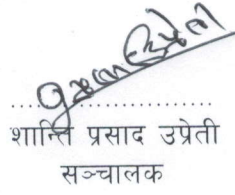 शान्ति प्रसाद उप्रेती
सञ्चालक